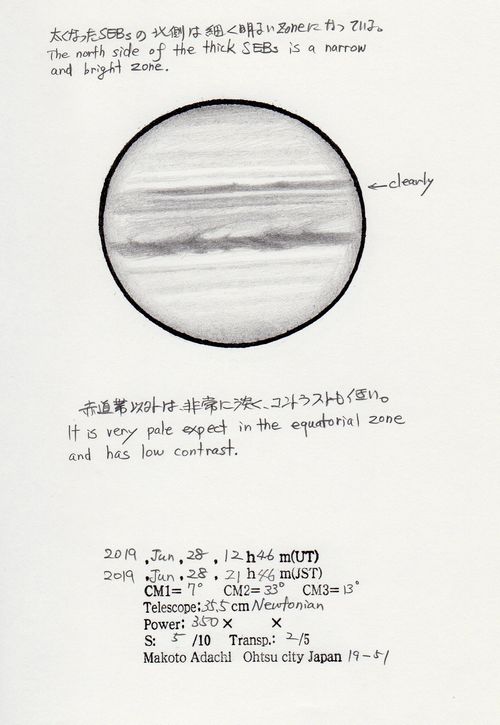 太くなったSEBsの北側は細く明るいzoneになっている。
The north side of the thick SEBs is a narrow
and bright zone.
←clearly
赤道帯以外は、非常に淡く、コントラストも低い。
It is very pale expect in the equatorial zone
and has low contrast.
2019 , Jun , 28 , 12 h 46 m(UT)
2019 , Jun , 28 , 21 h 46 m(JST)
CM1= 7° CM2= 33° CM3= 13°
Telescope: 35.5 cm Newtonian
Power: 350 × ×
S: 5 /10 Transp.: 2/5
Makoto Adachi Ohtsu city Japan 19-51